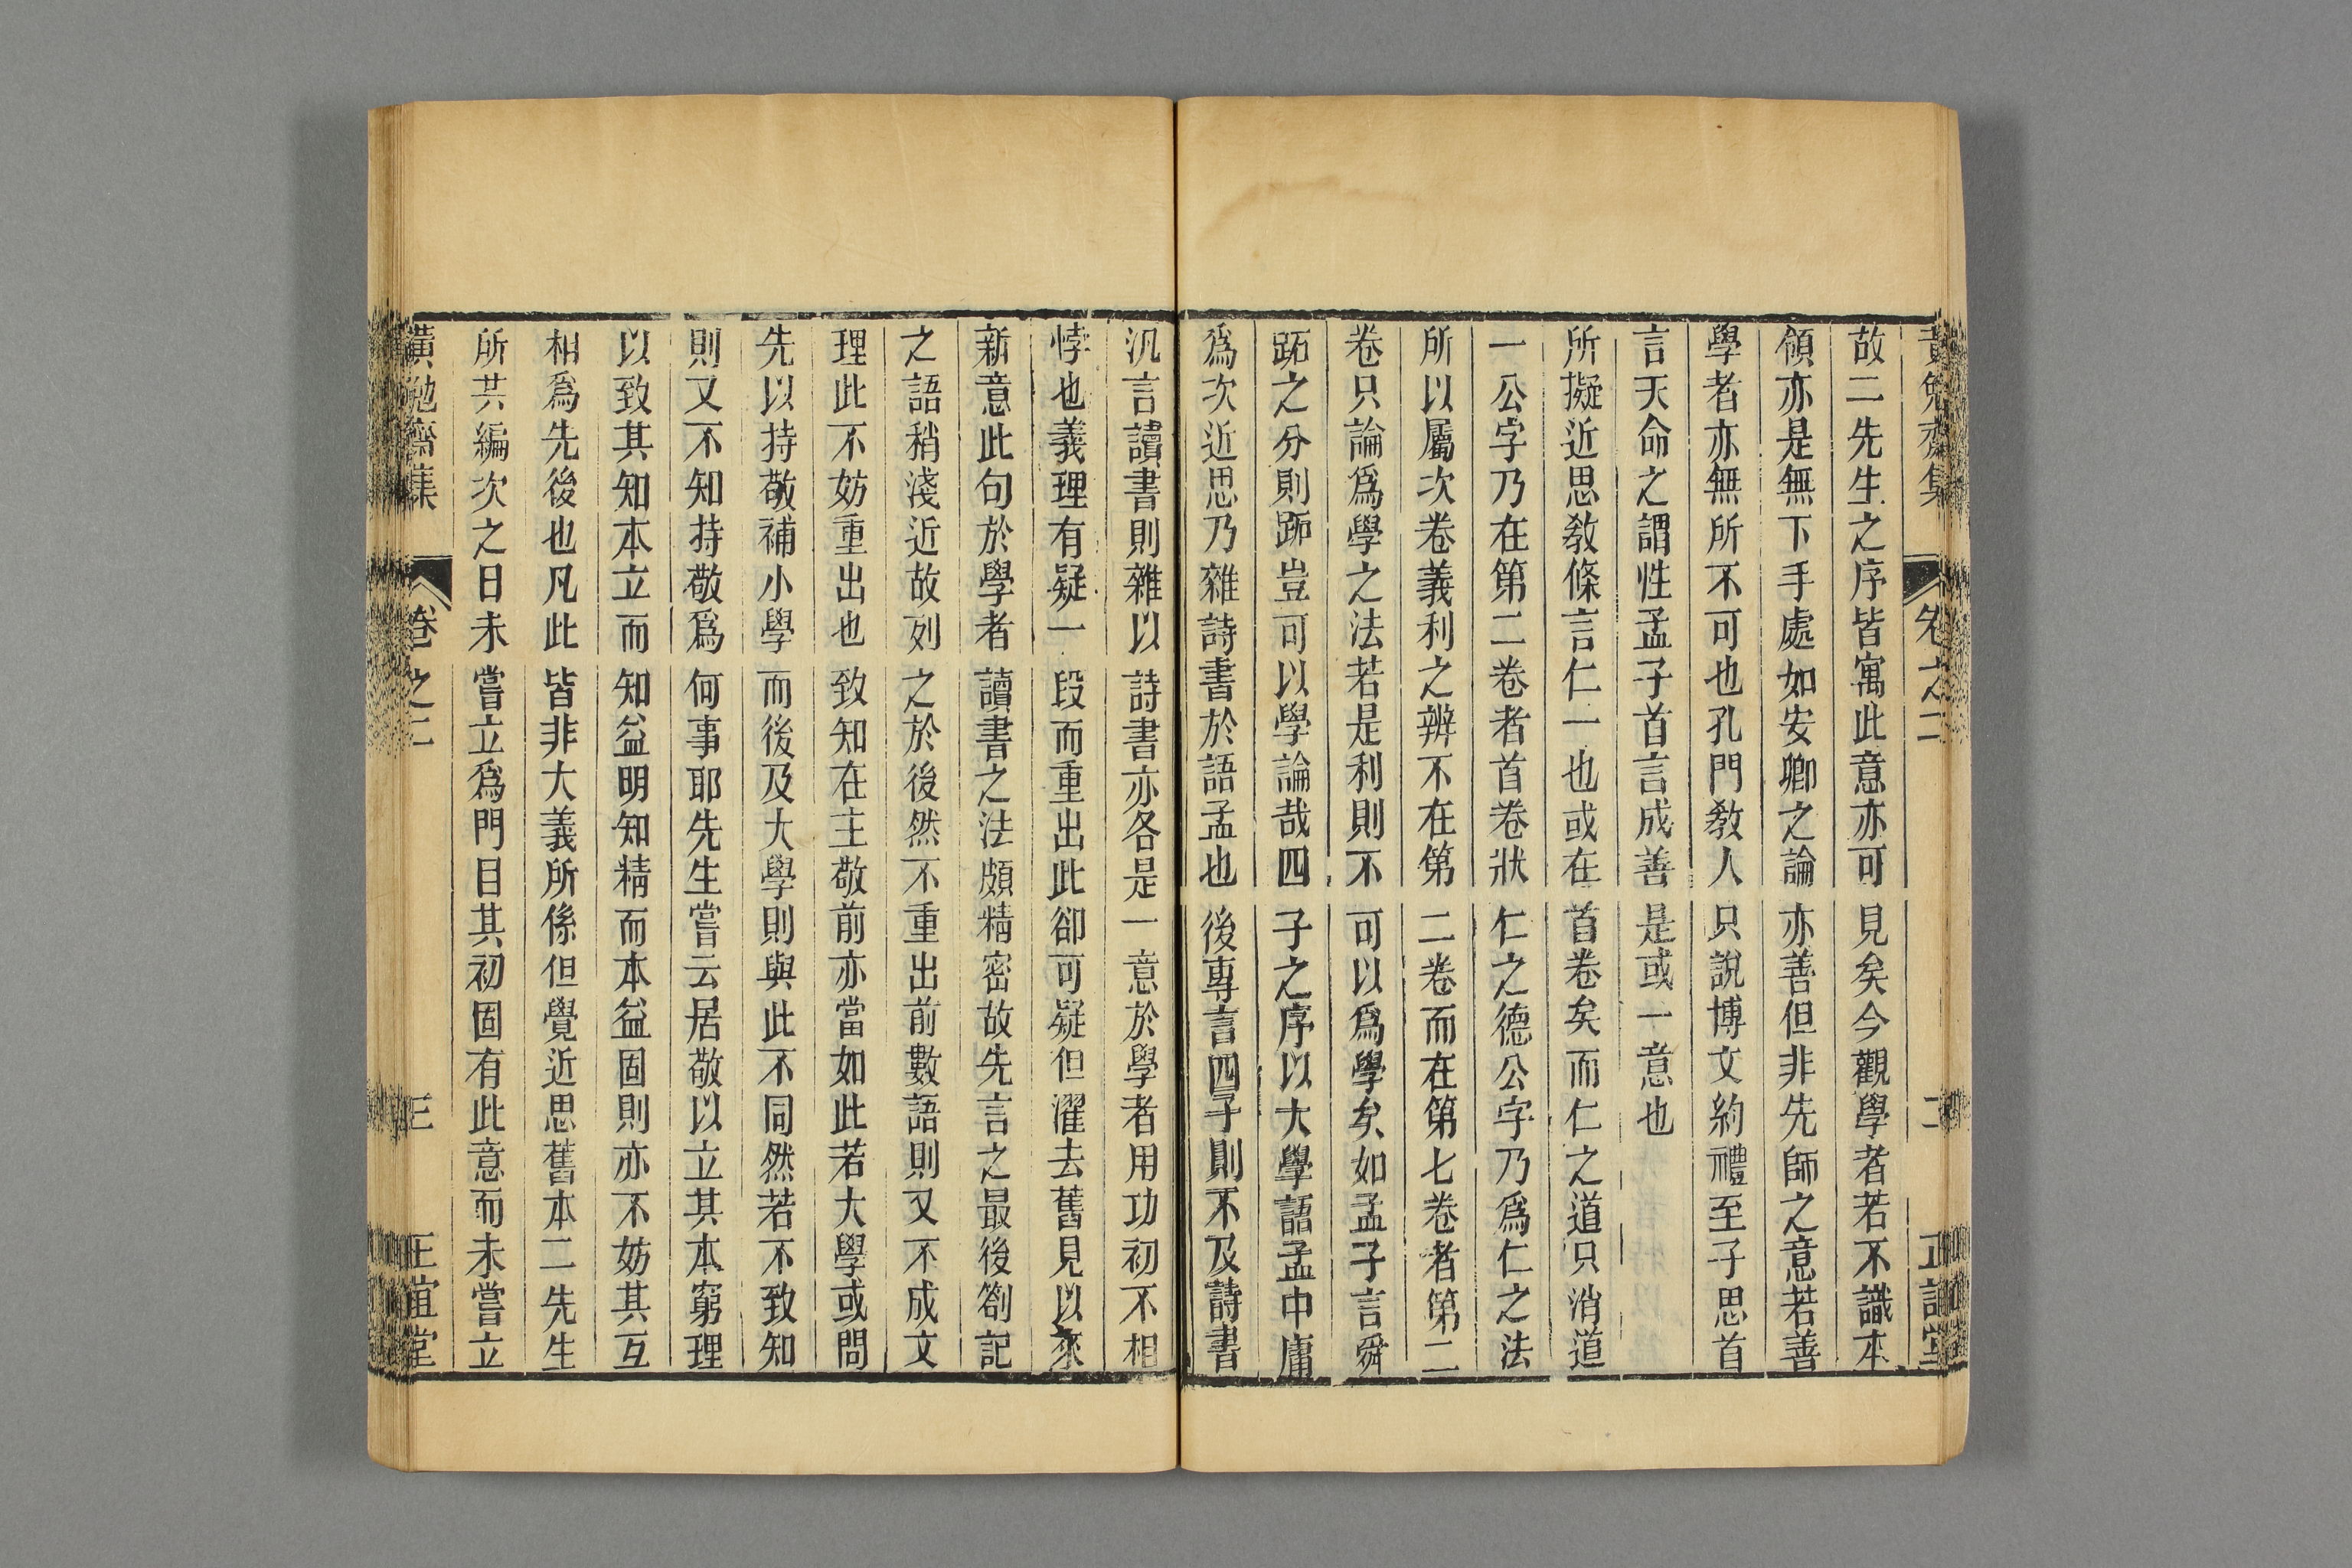 黃勉齋集 卷之二 二 正誼堂
故二先生之序皆寓此意亦可見矣今觀學者若不識本
領亦是無下手處如安卿之論亦善但非先師之意若善
學者亦無所不可也孔門敎人只說博文約禮至子思首
言天命之謂性孟子首言成善是或一意也
所擬近思敎條言仁一也或在首卷矣而仁之道只消道
一公字乃在第二卷者首卷狀仁之德公字乃爲仁之法
所以屬次卷義利之辨不在第二卷而在第七卷者第二
卷只論爲學之法若是利則不可以爲學矣如孟子言舜
跖之分則跖豈可以學論哉四子之序以大學語孟中庸
爲次近思乃雜詩書於語孟也後專言四子則不及詩書
汎言讀書則雜以詩書亦各是一意於學者用功初不相
悖也義理有疑一段而重出此卻可疑但濯去舊見以來
新意此句於學者讀書之法頗精密故先言之最後劄記
之語稍淺近故列之於後然不重出前數語則又不成文
理此不妨重出也致知在主敬前亦當如此若大學或問
先以持敬補小學而後及大學則與此不同然若不致知
則又不知持敬爲何事耶先生嘗云居敬以立其本窮理
以致其知本立而知益明知精而本益固則亦不妨其互
相爲先後也凡此皆非大義所係但覺近思舊本二先生
所共編次之日未嘗立爲門目其初固有此意而未嘗立
黃勉齋集 卷之二 三 正誼堂